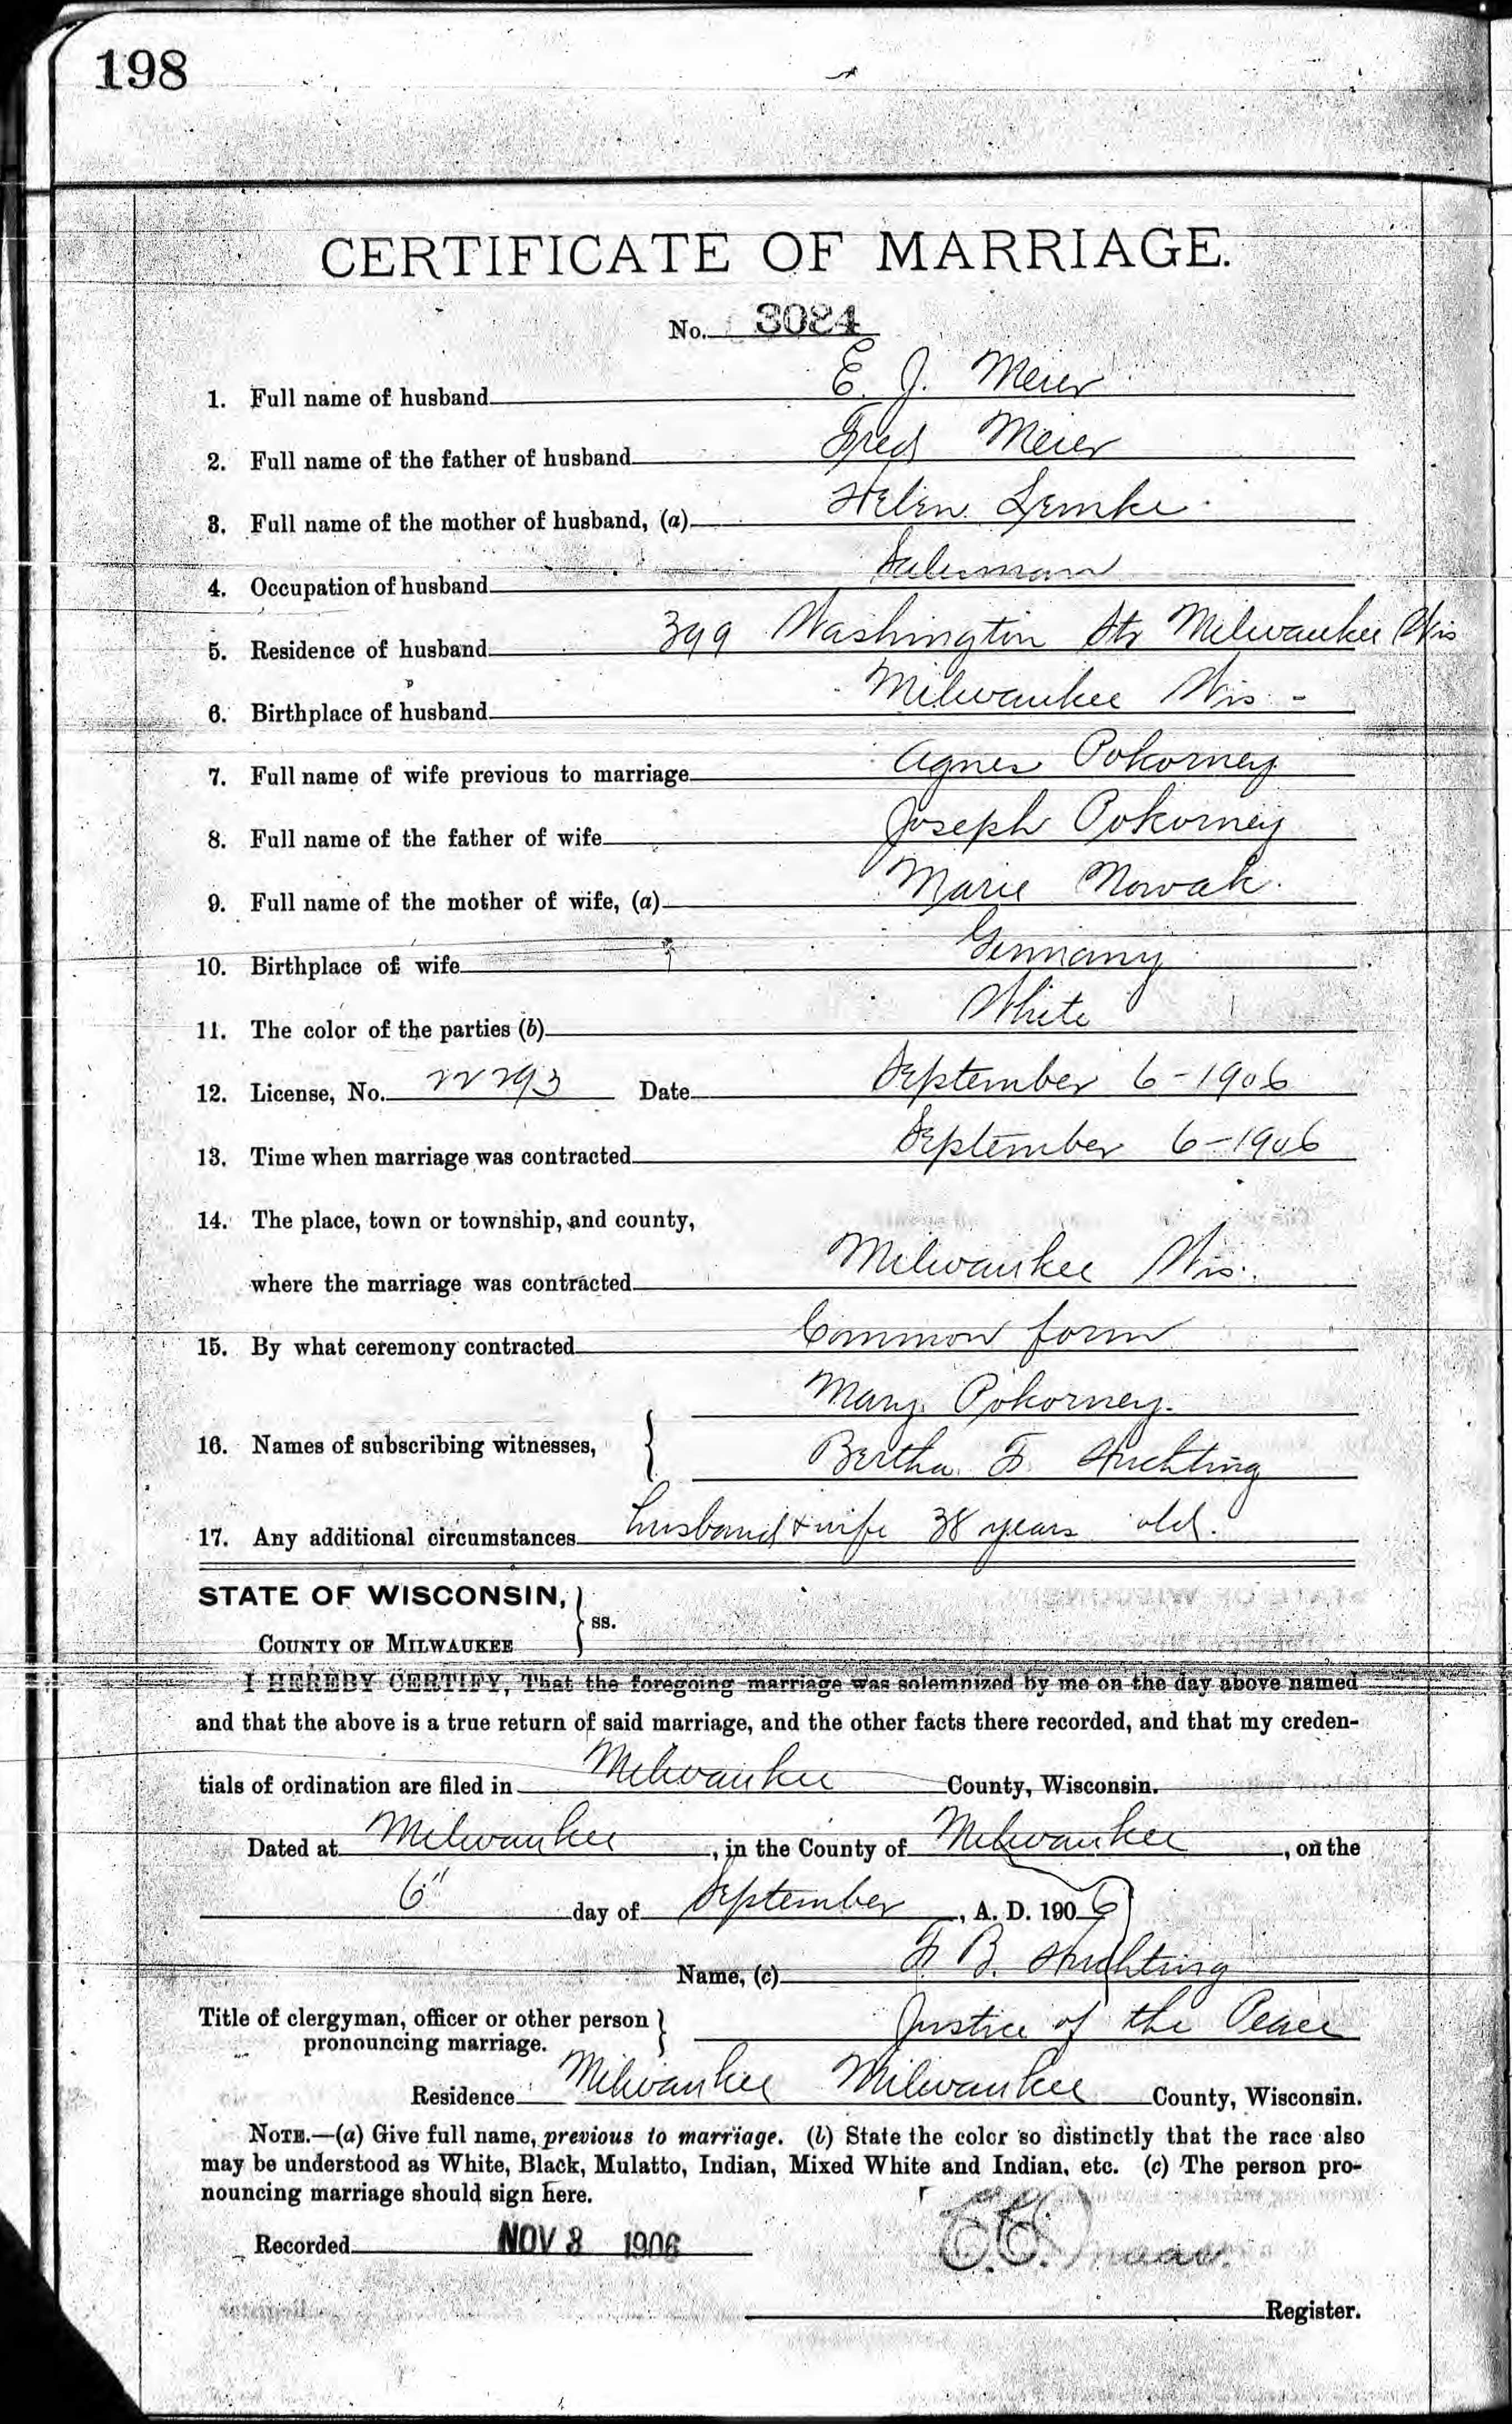 198
CERTIFICATE OF MARRIAGE.
No. 3084
1. Full name of husband E. J. Meier
2. Full name of the father of husband Fred Meier
3. Full name of the mother of husband, (a) Helen Lemke
4. Occupation of husband Salesman
5. Residence of husband 399 Washington Str Milwaukee Wis
6. Birthplace of husband Milwaukee Wis -
7. Full name of wife previous to marriage Agnes Pokorney
8. Full name of the father of wife Joseph Pokorney
9. Full name of the mother of wife, (a) Marie Nowak.
10. Birthplace of wife Germany
11. The color of the parties (b) White
12. License, No. 22293 Date September 6-1906
13. Time when marriage was contracted September 6-1906
14. The place, town or township, and county,
where the marriage was contracted Milwaukee Wis.
15. By what ceremony contracted Common form
Mary Pokorney.
16. Names of subscribing witnesses,
Bertha F.
17. Any additional circumstances husband & wife 38 years old.
STATE OF WISCONSIN,
ss.
COUNTY OF MILWAUKEE
I HEREBY CERTIFY, That the foregoing marriage was solemnized by me on the day above named
and that the above is a true return of said marriage, and the other facts there recorded, and that my creden-
tials of ordination are filed in Milwaukee County, Wisconsin.
Dated at Milwaukee, in the County of Milwaukee, on the
6" day of September, A. D. 1906
Name, (c) F. B.
Title of clergyman, officer or other person
pronouncing marriage. Justice of the Peace
Residence Milwaukee Milwaukee County, Wisconsin.
NOTE.—(a) Give full name, previous to marriage. (b) State the color so distinctly that the race also
may be understood as White, Black, Mulatto, Indian, Mixed White and Indian, etc. (c) The person pro-
nouncing marriage should sign here.
Recorded NOV 8 1906
Register.